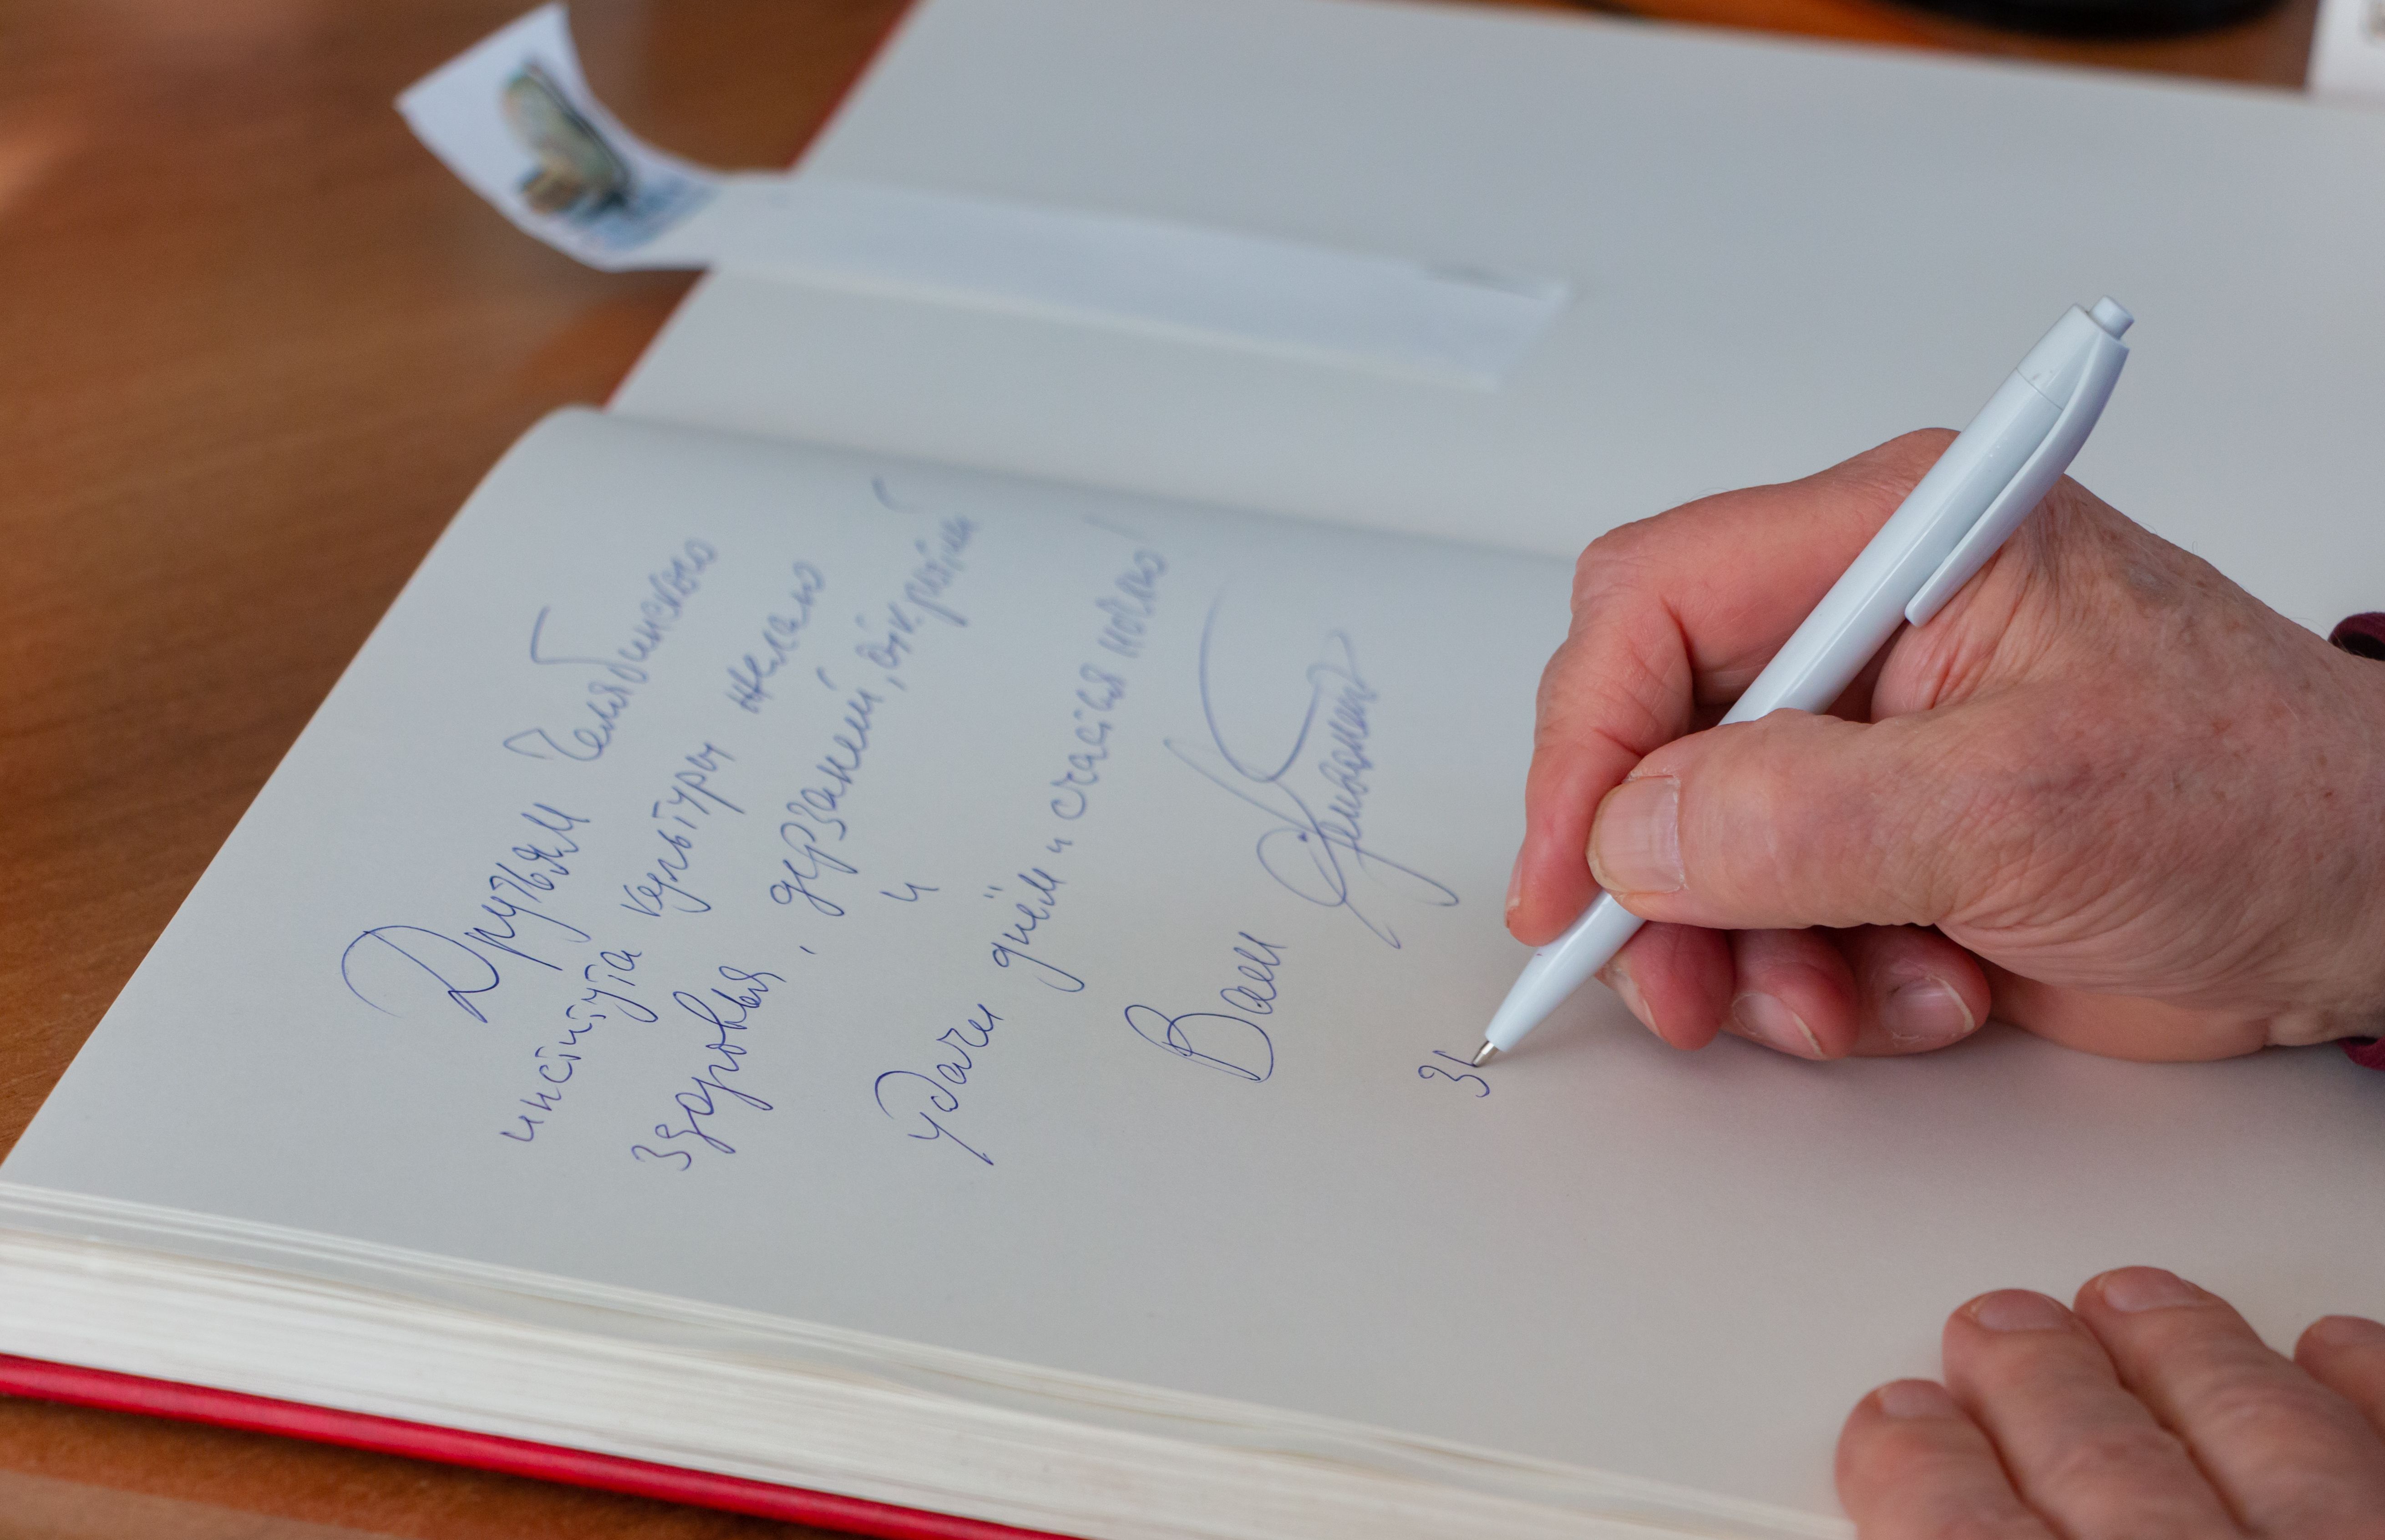 Друзьям Челябинского
института культуры желаю
здоровья, дерзаний, открытий
и
удачи днём и счастья ночью!
Ваш
31